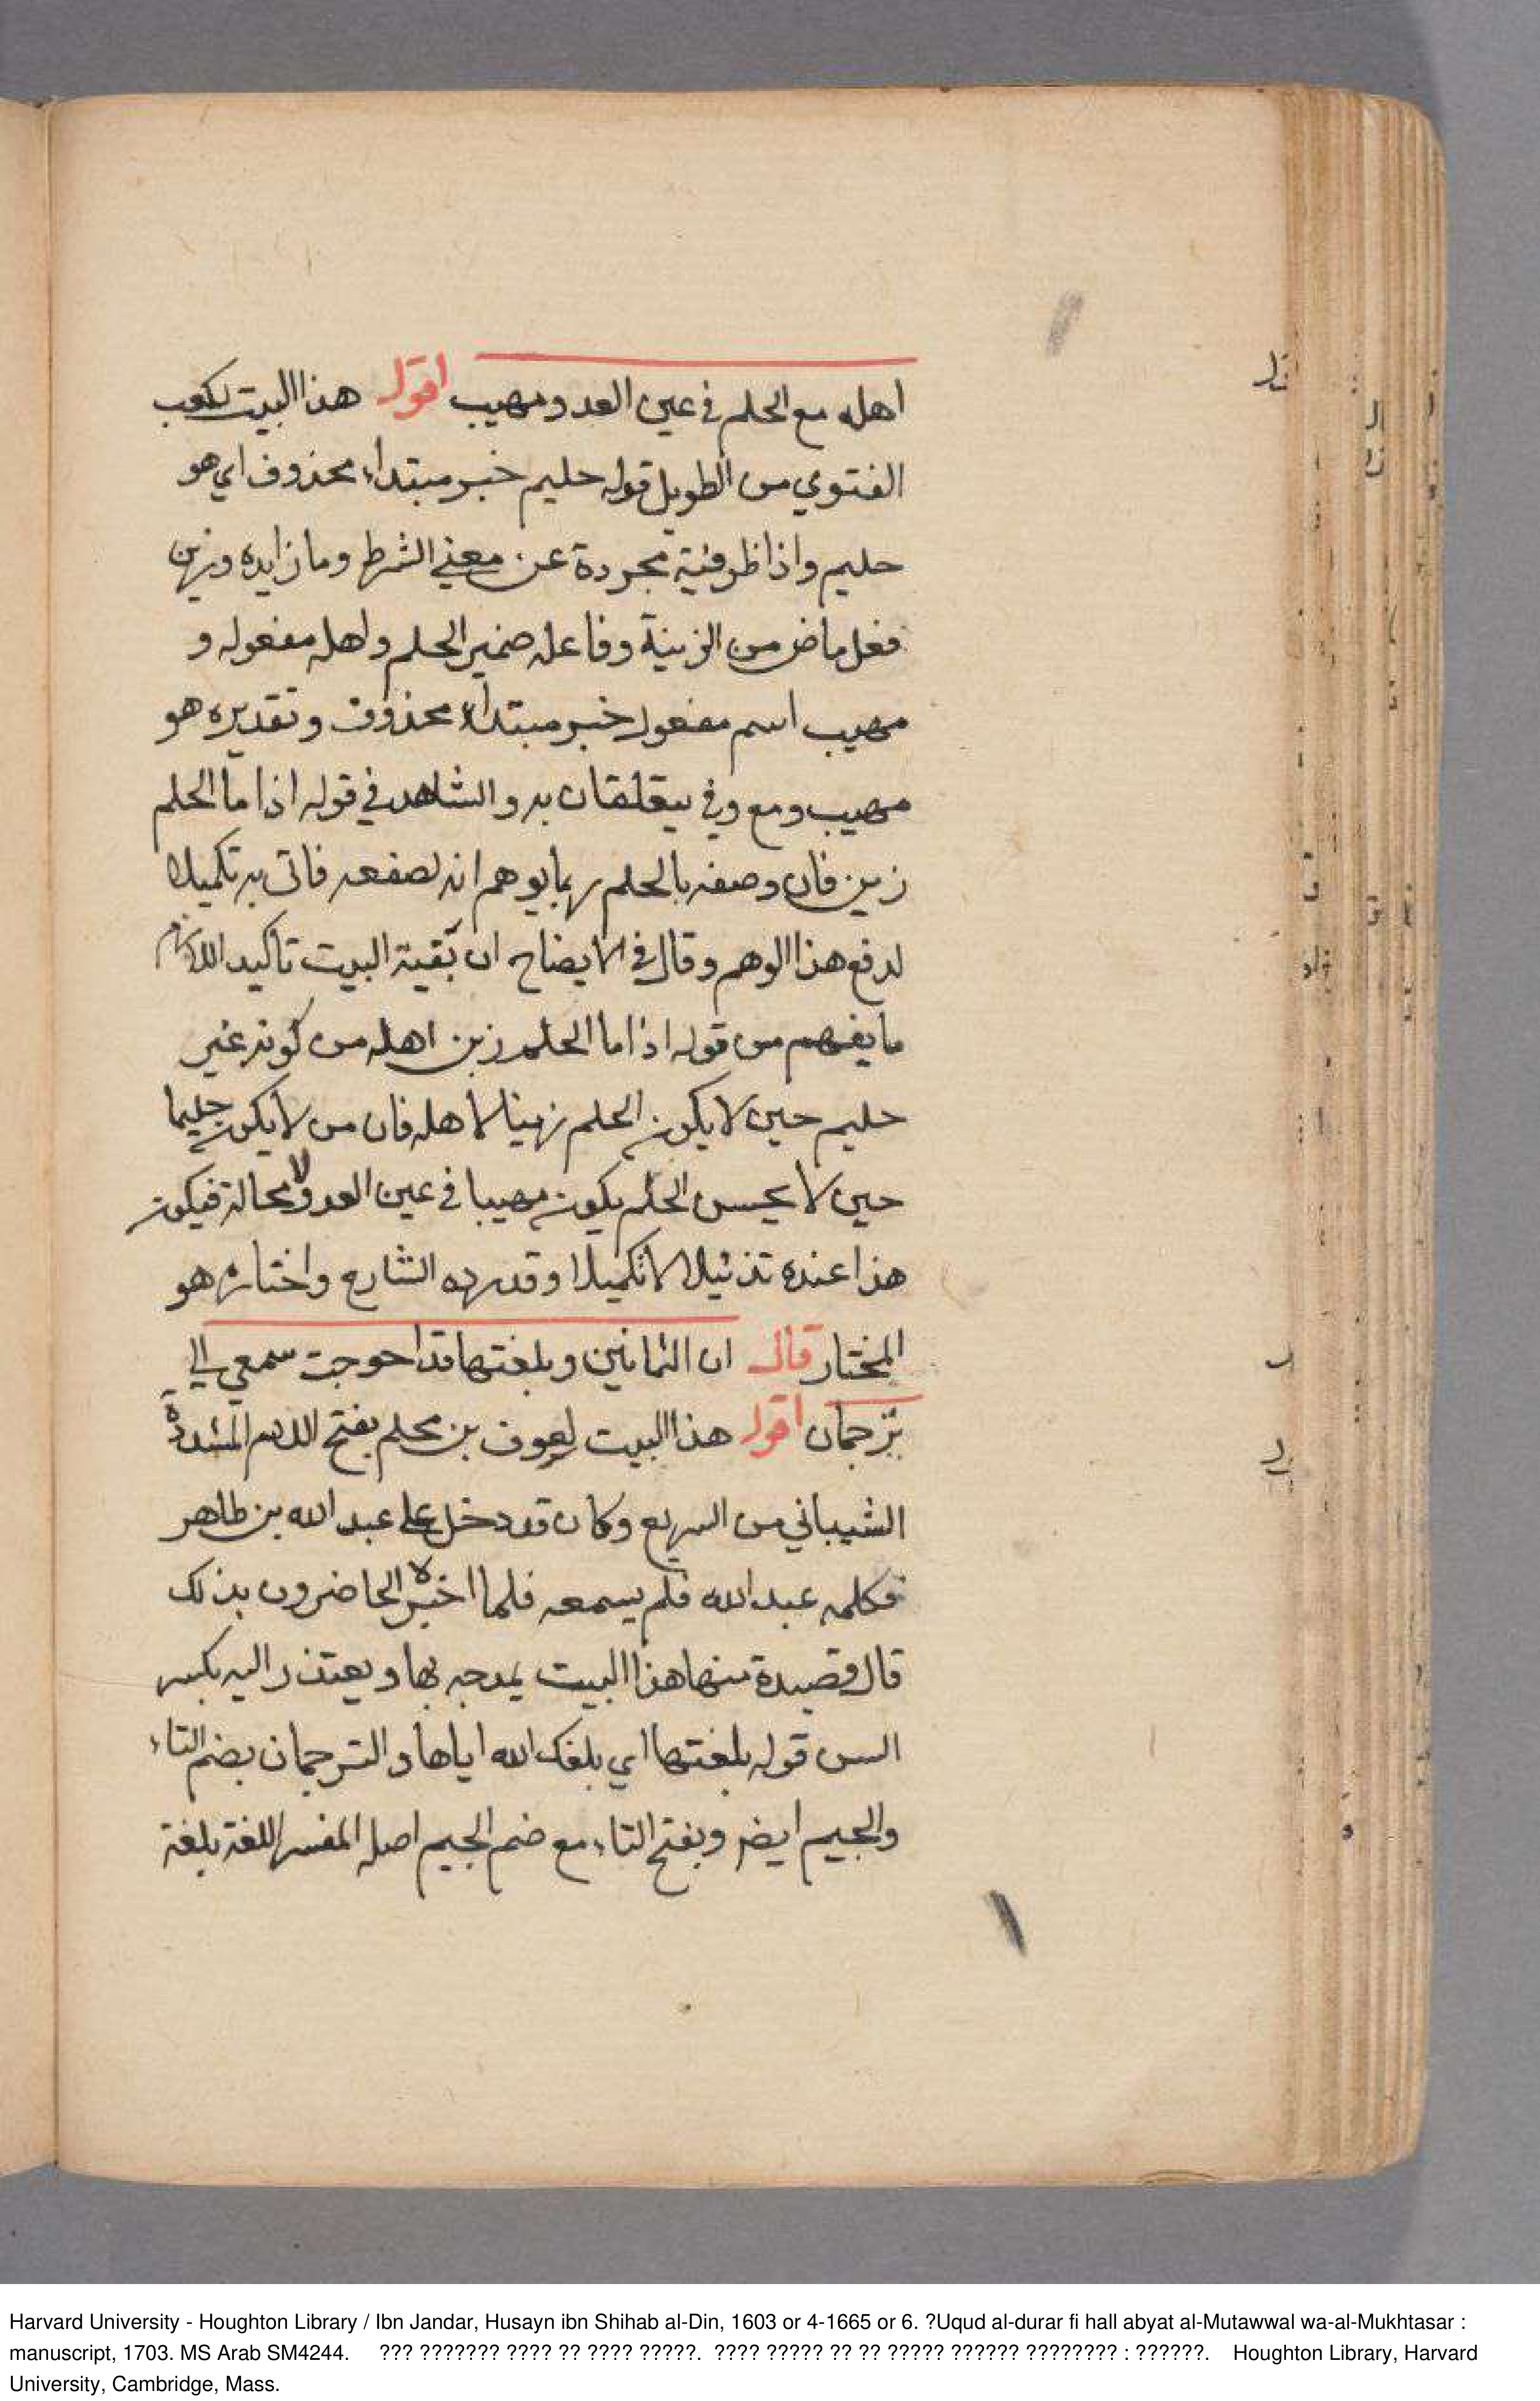 اهله مع الحلم في عين العدو مهيب اقول هذا البيت لكعب
الغنوي من الطويل قوله حليم خبر مبتداء محذوف اي هو
حليم واذا ظرفية مجردة عن معني الشرط وما زايده وزين
فعل ماض من الزينة وفاعله ضمير الحلم واهله مفعوله و
مهيب اسم مفعول خبر مبتداء محذوف وتقديره هو
مهيب ومع وفي يتعلقان به والشاهد في قوله اذا ما الحلم
زين فان وصفه بالحلم ربما يوهم انه لضعفه فاتى به تكميلا
لدفع هذا الوهم وقال في الايضاح ان بقية البيت تاكيد اللازم
ما يفهم من قوله اذا ما الحلم زين اهله من كونه غير
حليم حين لا يكون الحلم زينا لاهله فان من لا يكون حليما
حين لا يحسن الحلم يكون مهيبا في عين العدو لا محالة فيكون
هذا عنده تذئيلا لا تكميلا وقد رده الشارح واختاره هو
المختار قال ان الثمانين وبلغتها قد احوجت سمعي الي
ترجمان اقول هذا البيت لعوف بن محلم بفتح اللام المشددة
الشيباني من السريع وكان قد دخل علي عبد الله بن طاهر
فكلمه عبد الله فلم يسمعه فلما اخبره الحاضرون بذلك
قال قصيدة منها هذا البيت يمدحه بها ويعتذر اليه بكبر
السن قوله بلغتها اي بلغك الله اياها والترجمان بضم التاء
والجيم ايض وبفتح التاء مع ضم الجيم اصله المفسر اللغة بلغة
Harvard University - Houghton Library / Ibn Jandar, Husayn ibn Shihab al-Din, 1603 or 4-1665 or 6. ?Uqud al-durar fi hall abyat al-Mutawwal wa-al-Mukhtasar :
manuscript, 1703. MS Arab SM4244. ??? ??????? ???? ?? ???? ?????. ???? ????? ?? ?? ????? ?????? ???????? : ??????. Houghton Library, Harvard
University, Cambridge, Mass.